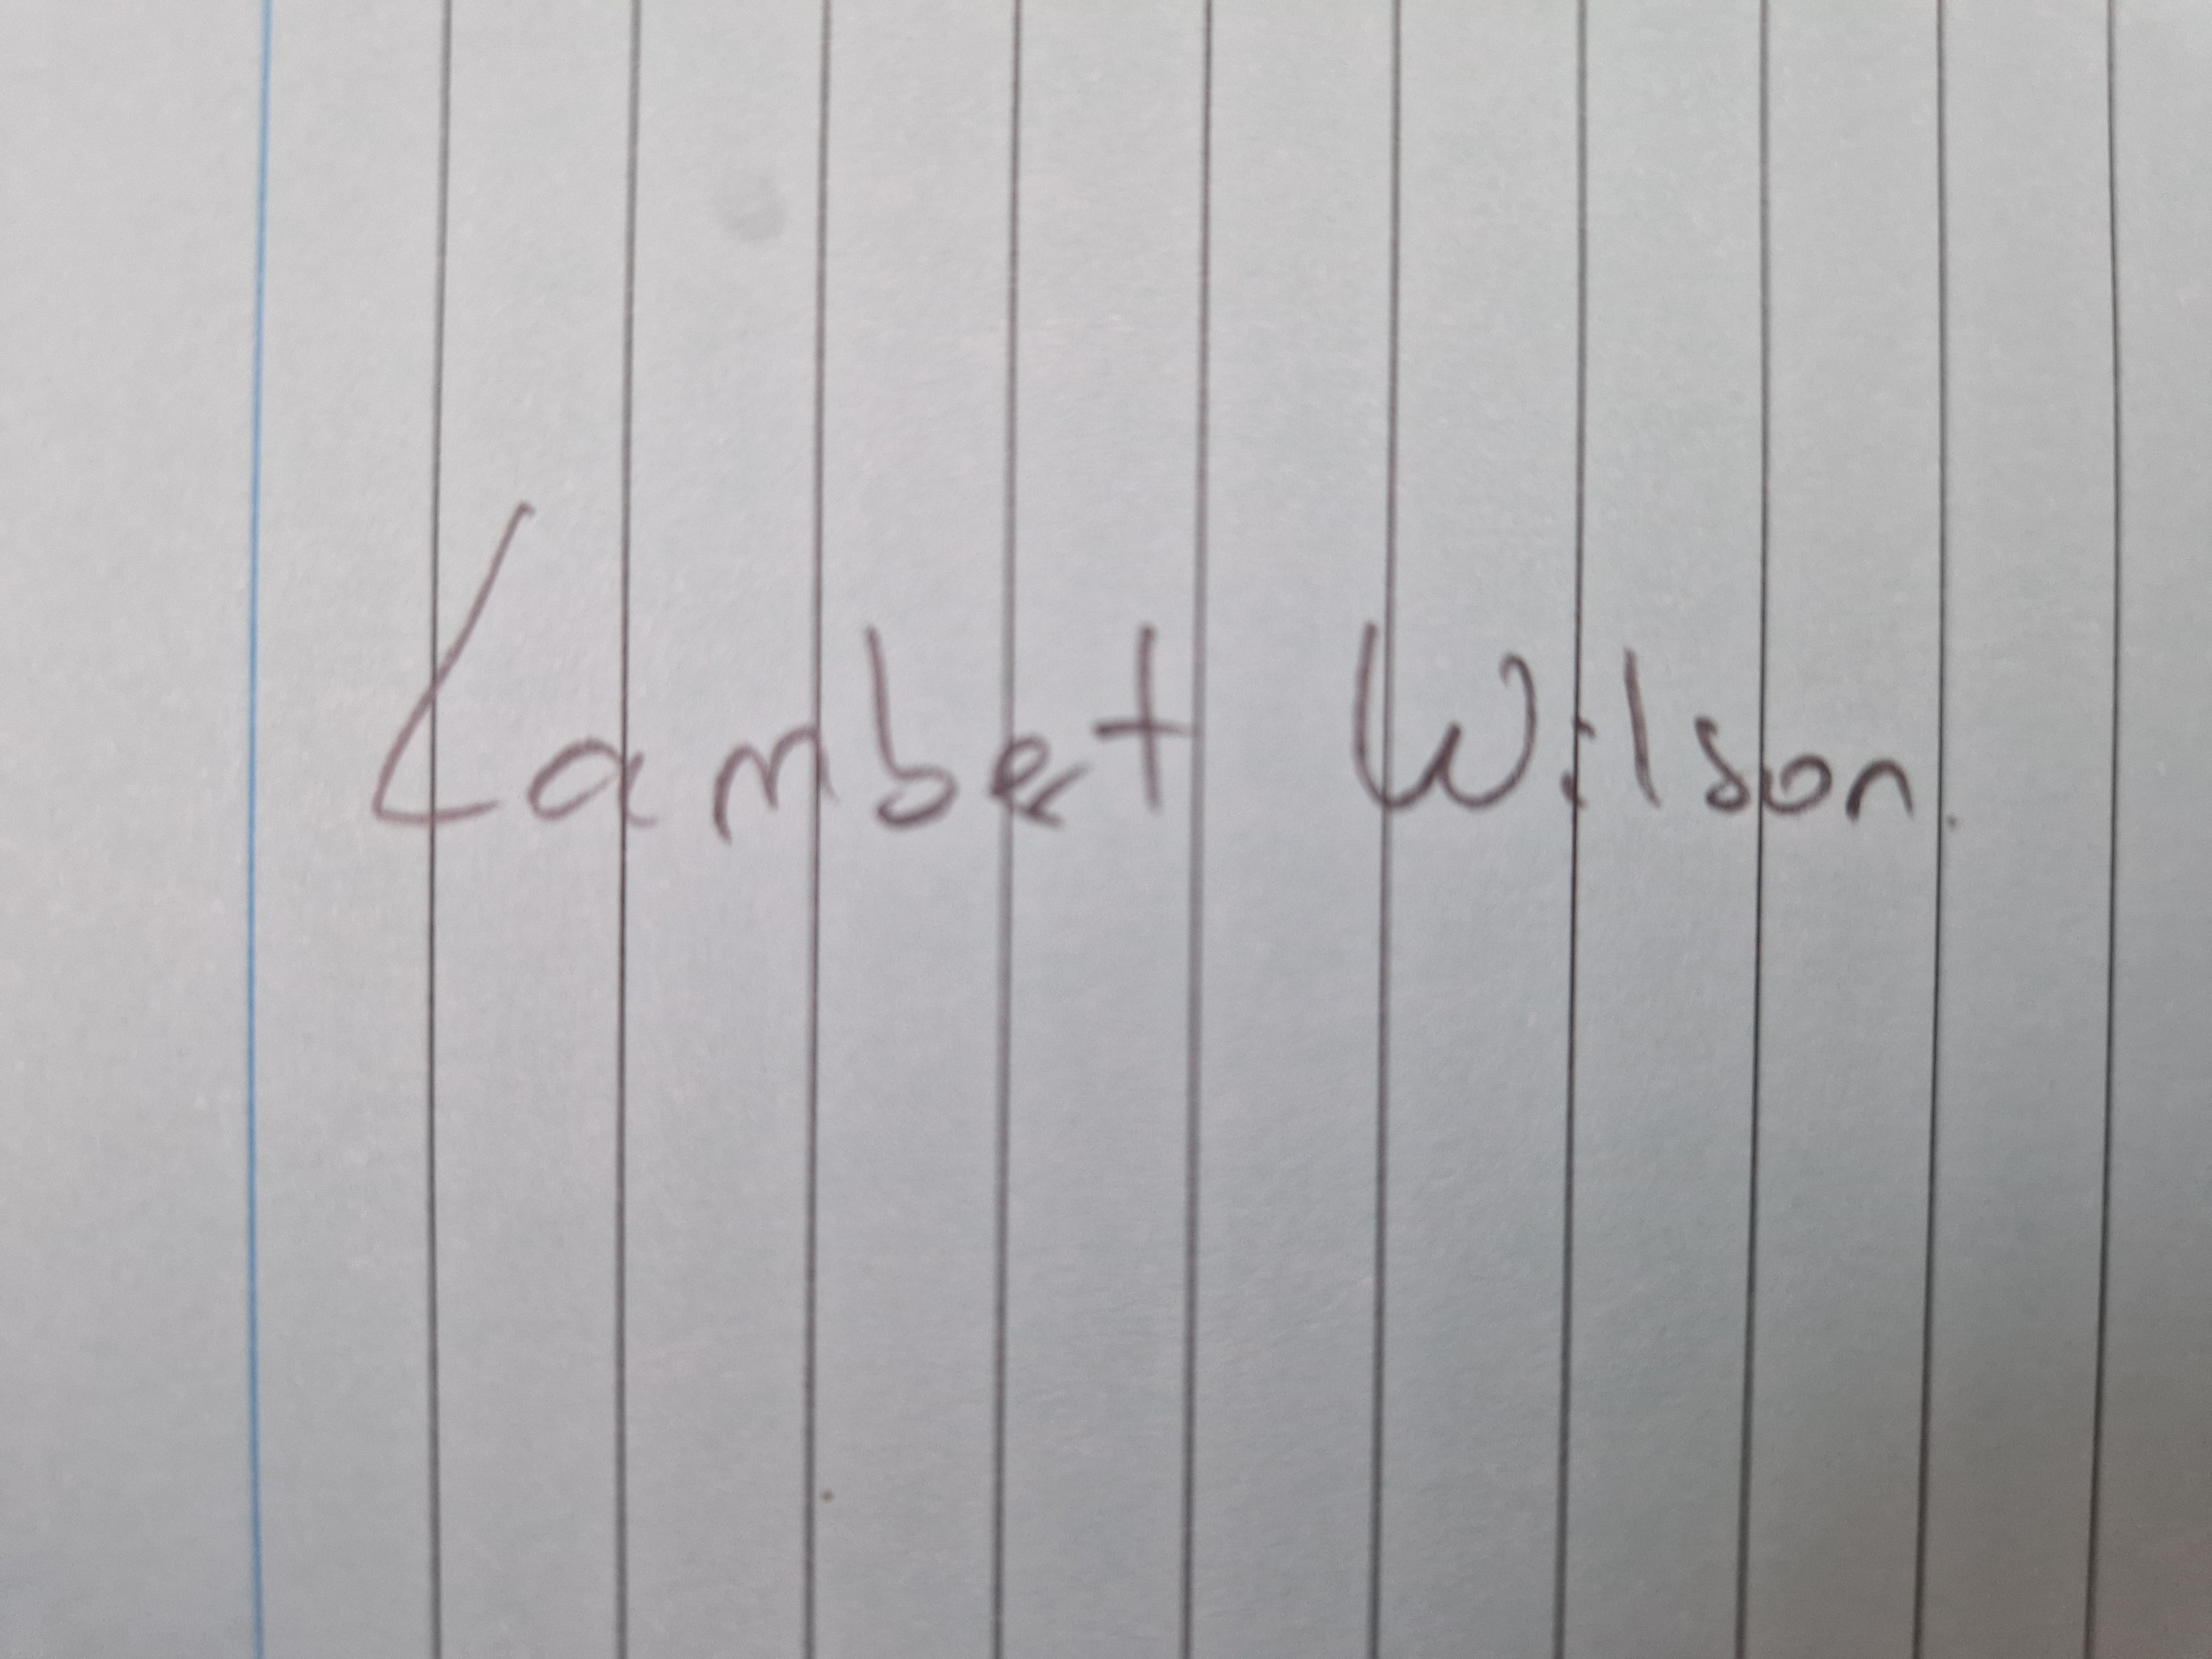 Lambert Wilson